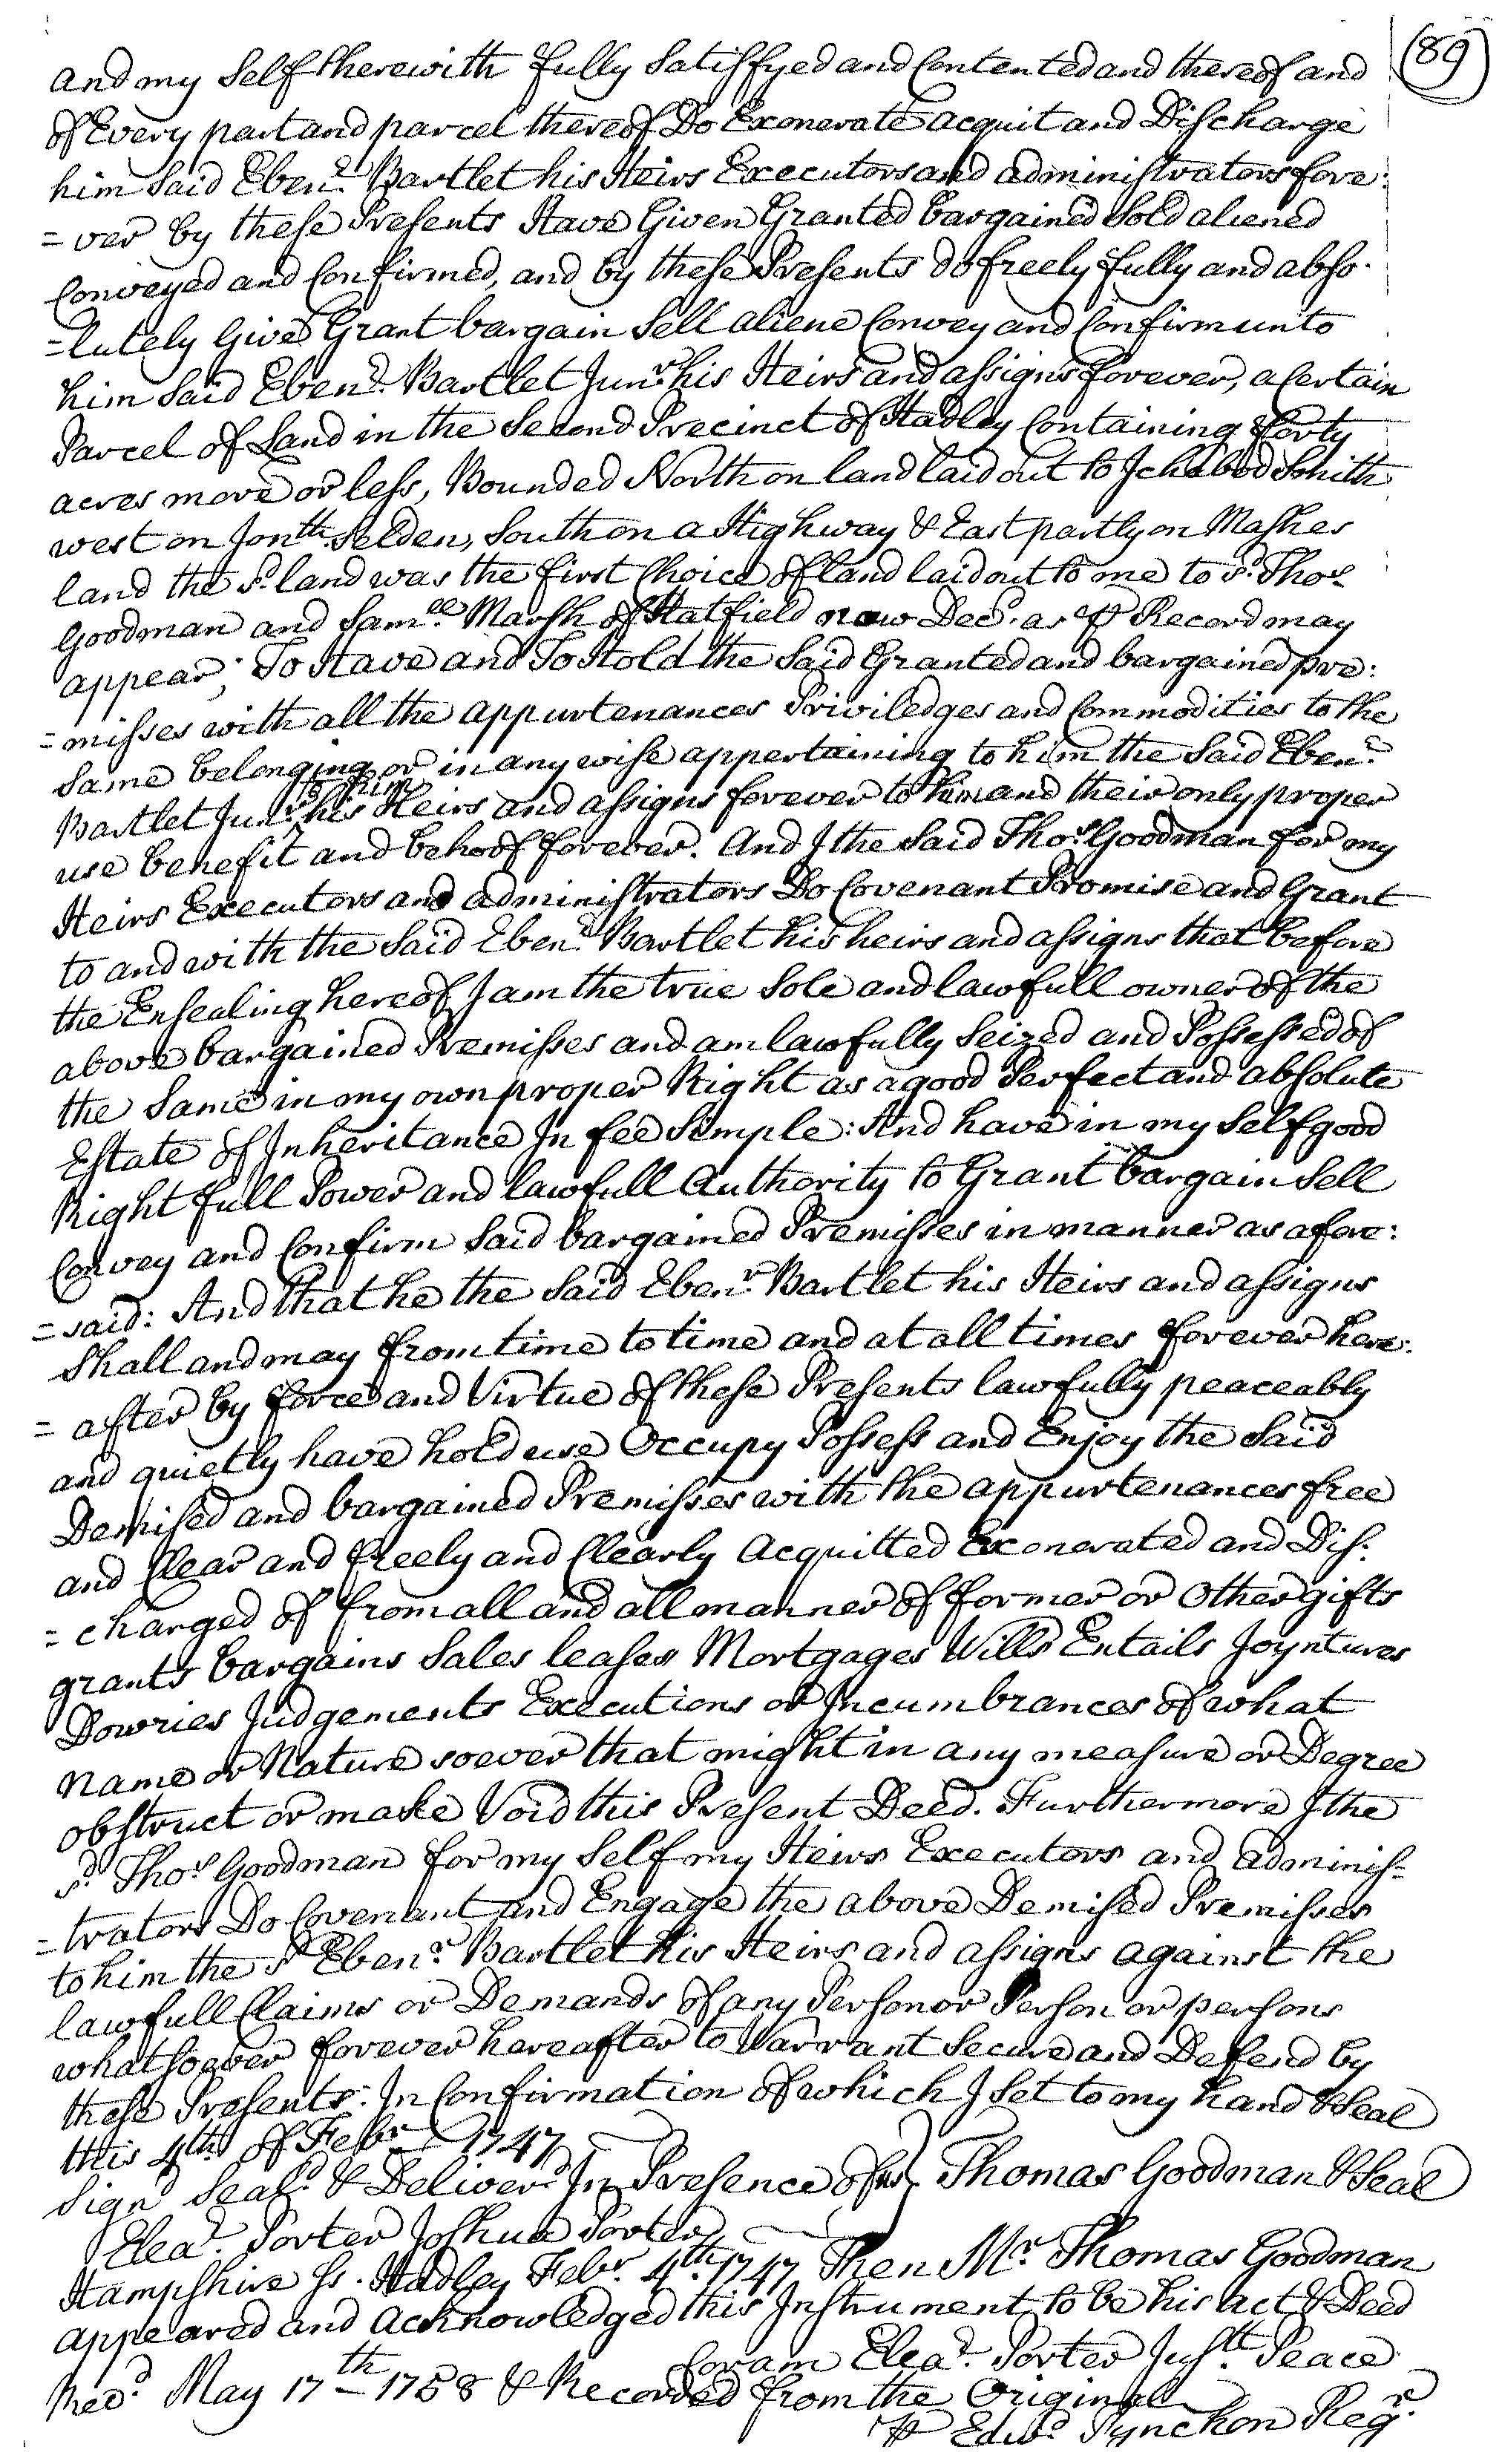 (89)
and my Self therewith fully Satisfyed and Contented and thereof and
of Every part and parcel thereof Do Exonerate acquit and Discharge
him Said Ebenr. Bartlet his Heirs Executors and administrators fore:
=ver by these Presents Have Given Granted bargained Sold aliened
Conveyed and Confirmed, and by these Presents do freely fully and abso-
=lutely Give Grant bargain Sell aliene Convey and Confirm unto
him Said Ebenr. Bartlet Junr. his Heirs and assigns forever, a Certain
Parcel of Land in the Second Precinct of Hadley Containing forty
acres more or less, Bounded North on land laid out to Ichabod Smith
west on Jonth. Selden, South on a Highway & East partly on Mashes
land the sd. land was the first Choice of land laid out to me to sd. Thos.
Goodman and Samll. Marsh of Hatfield now Decd. as Pr Record may
appear; To Have and To Hold the Said Granted and bargained pre:
=misses with all the appurtenances Priviledges and Commodities to the
Same belonging or in any wise appertaining to him the Said Ebenr.
Bartlet Junr. his Heirs and assigns forever to him and their only proper
use benefit and behoof forever. And I the Said Thos. Goodman for my
Heirs Executors and administrators Do Covenant Promise and Grant
to and with the Said Ebenr. Bartlet his heirs and assigns that before
the Ensealing hereof I am the true Sole and lawfull owner of the
above bargained Premisses and am lawfully Seized and Possessed of
the Same in my own proper Right as a good Perfect and absolute
Estate of Inheritance In fee Simple: And have in my Self good
Right full Power and lawfull Authority to Grant bargain Sell
Convey and Confirm Said bargained Premisses in manner as afore:
=said: And that he the Said Ebenr. Bartlet his Heirs and assigns
Shall and may from time to time and at all times forever here:
=after by force and Virtue of these Presents lawfully peaceably
and quietly have hold use Occupy Possess and Enjoy the Said
Demised and bargained Premisses with the appurtenances free
and Clear and freely and Clearly Acquitted Exonerated and Dis:
=charged of from all and all manner of former or Other gifts
grants bargains Sales leases Mortgages Wills Entails Joyntures
Dowries Judgements Executions or Incumbrances of what
Name or Nature soever that might in any measure or Degree
obstruct or make Void this Present Deed. Furthermore I the
sd. Thos. Goodman for my Self my Heirs Executors and Adminis-
=trators Do Covenant and Engage the above Demised Premisses
to him the sd Ebenr. Bartlet his Heirs and assigns against the
lawfull Claims or Demands of any Person or Person or persons
whatsoever forever hereafter to Warrant Secure and Defend by
these Presents: In Confirmation of which I Set to my hand & Seal
this 4th of Febr. 1747
Signd Seald. & Deliverd. In Presence of us Thomas Goodman & Seal
Eleaz. Porter Joshua Porter
Hampshire Ss. Hadley Febr. 4th. 1747 Then Mr. Thomas Goodman
appeared and Acknowledged this Instrument to be his Act & Deed
Coram Eleaz. Porter Justt. Peace
Recd. May 17th 1758 & Recorded from the Original
Pr Edwd. Pynchon Regr.